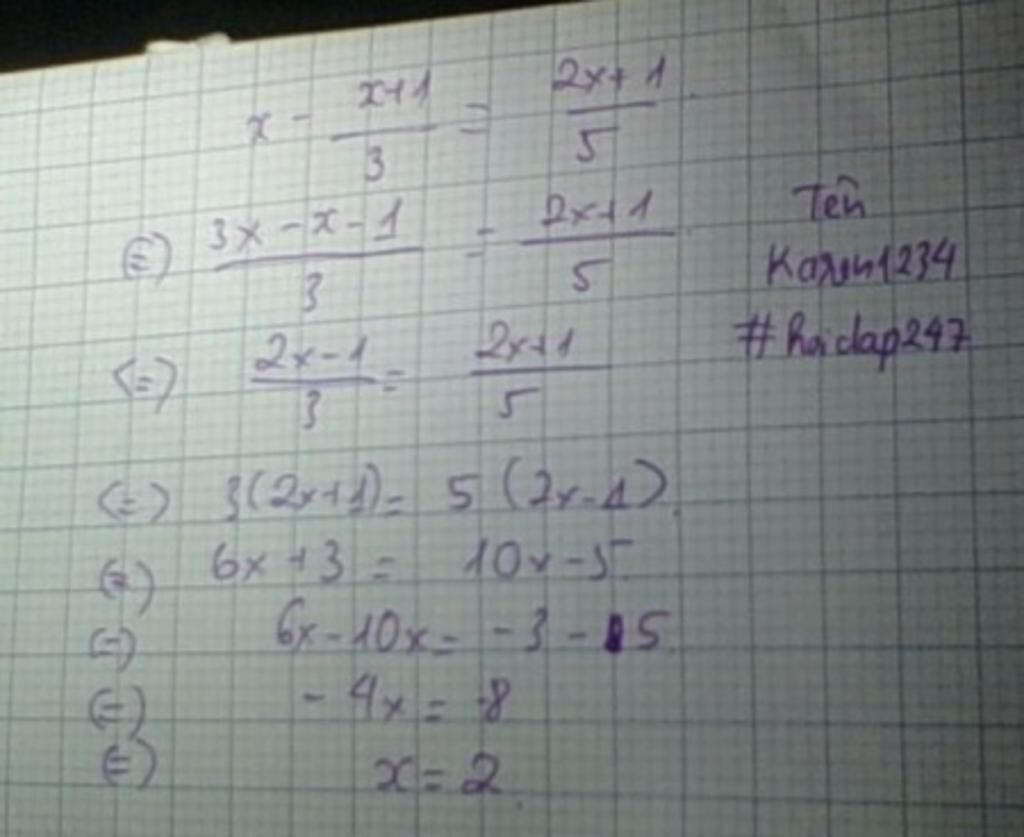 x - \frac{x+1}{3} = \frac{2x+1}{5}
(=) \frac{3x-x-1}{3} = \frac{2x+1}{5}
(=) \frac{2x-1}{3} = \frac{2x+1}{5}
(=) 3(2x+1) = 5(2x-1)
(=) 6x+3 = 10x-5
(=) 6x-10x = -3-5
(=) -4x = -8
(=) x = 2
Tên
Karin1234
#hoidap247